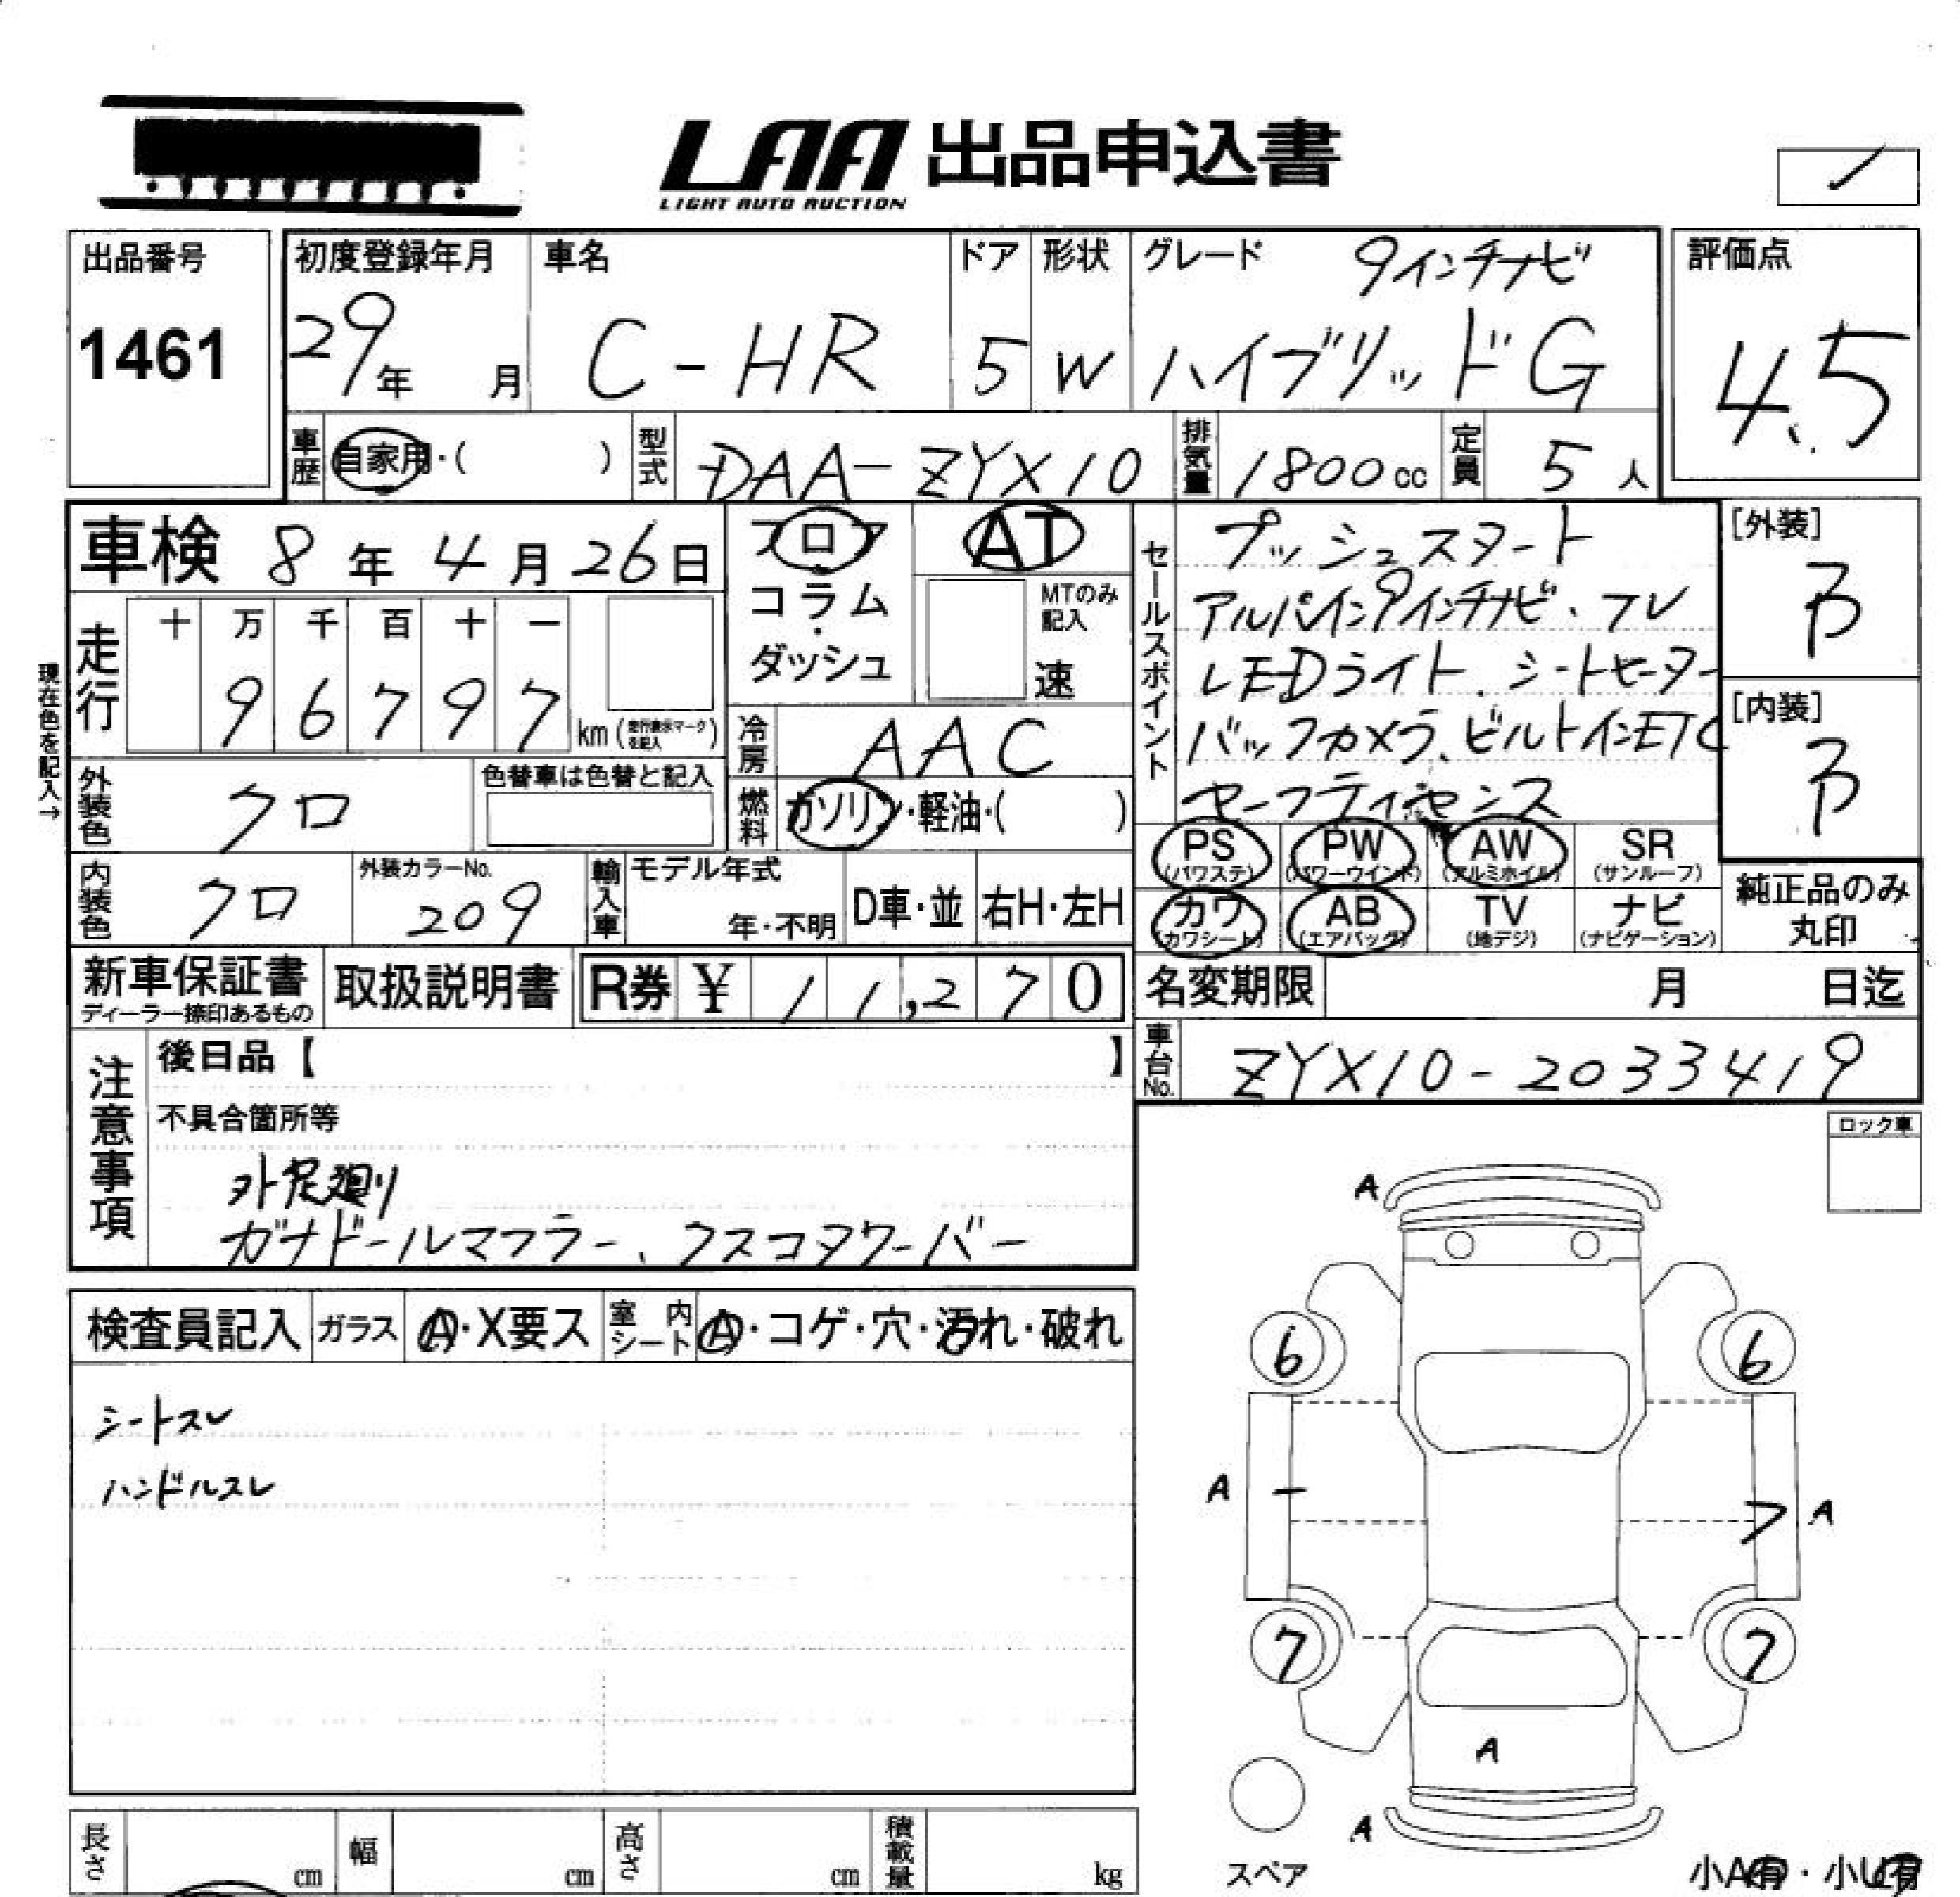 LAA 出品申込書
LIGHT AUTO AUCTION
出品番号
1461
初度登録年月
29年 月
車名
C-HR
ドア
5
形状
W
グレード
9インチナビ
ハイブリッドG
評価点
4.5
車歴 自家用・( )
型式 DAA-ZYX10
排気量 1800cc
定員 5人
車検 8年4月26日
フロア
コラム
・
ダッシュ
AT
MTのみ
記入
速
走行
十 万 千 百 十 一
9 6 7 9 7 km (走行表示マークを記入)
現在色を記入→
外装色 クロ
色替車は色替と記入
内装色 クロ
外装カラーNo.
209
冷房 AAC
燃料 ガソリン・軽油・( )
輸入車 モデル年式
年・不明
D車・並
右H・左H
セールスポイント
プッシュスタート
アルパイン9インチナビ・フレ
LEDライト、シートヒーター
バックカメラ、ビルトインETC
セーフティセンス
[外装]
B
[内装]
B
PS (パワステ)
PW (パワーウインド)
AW (アルミホイル)
SR (サンルーフ)
カワ (カワシート)
AB (エアバッグ)
TV (地デジ)
ナビ (ナビゲーション)
純正品のみ
丸印
新車保証書
ディーラー捺印あるもの
取扱説明書
R券 ¥ 11,270
名変期限 月 日迄
車台No. ZYX10-2033419
注意事項
後日品【 】
不具合箇所等
外足廻り
ガナドールマフラー、クスコタワーバー
ロック車
検査員記入
ガラス A・X要ス
室内シート A・コゲ・穴・汚れ・破れ
シートスレ
ハンドルスレ
A
6
6
A
A
7
7
A
A
スペア
長さ cm
幅 cm
高さ cm
積載量 kg
小A有・小U有